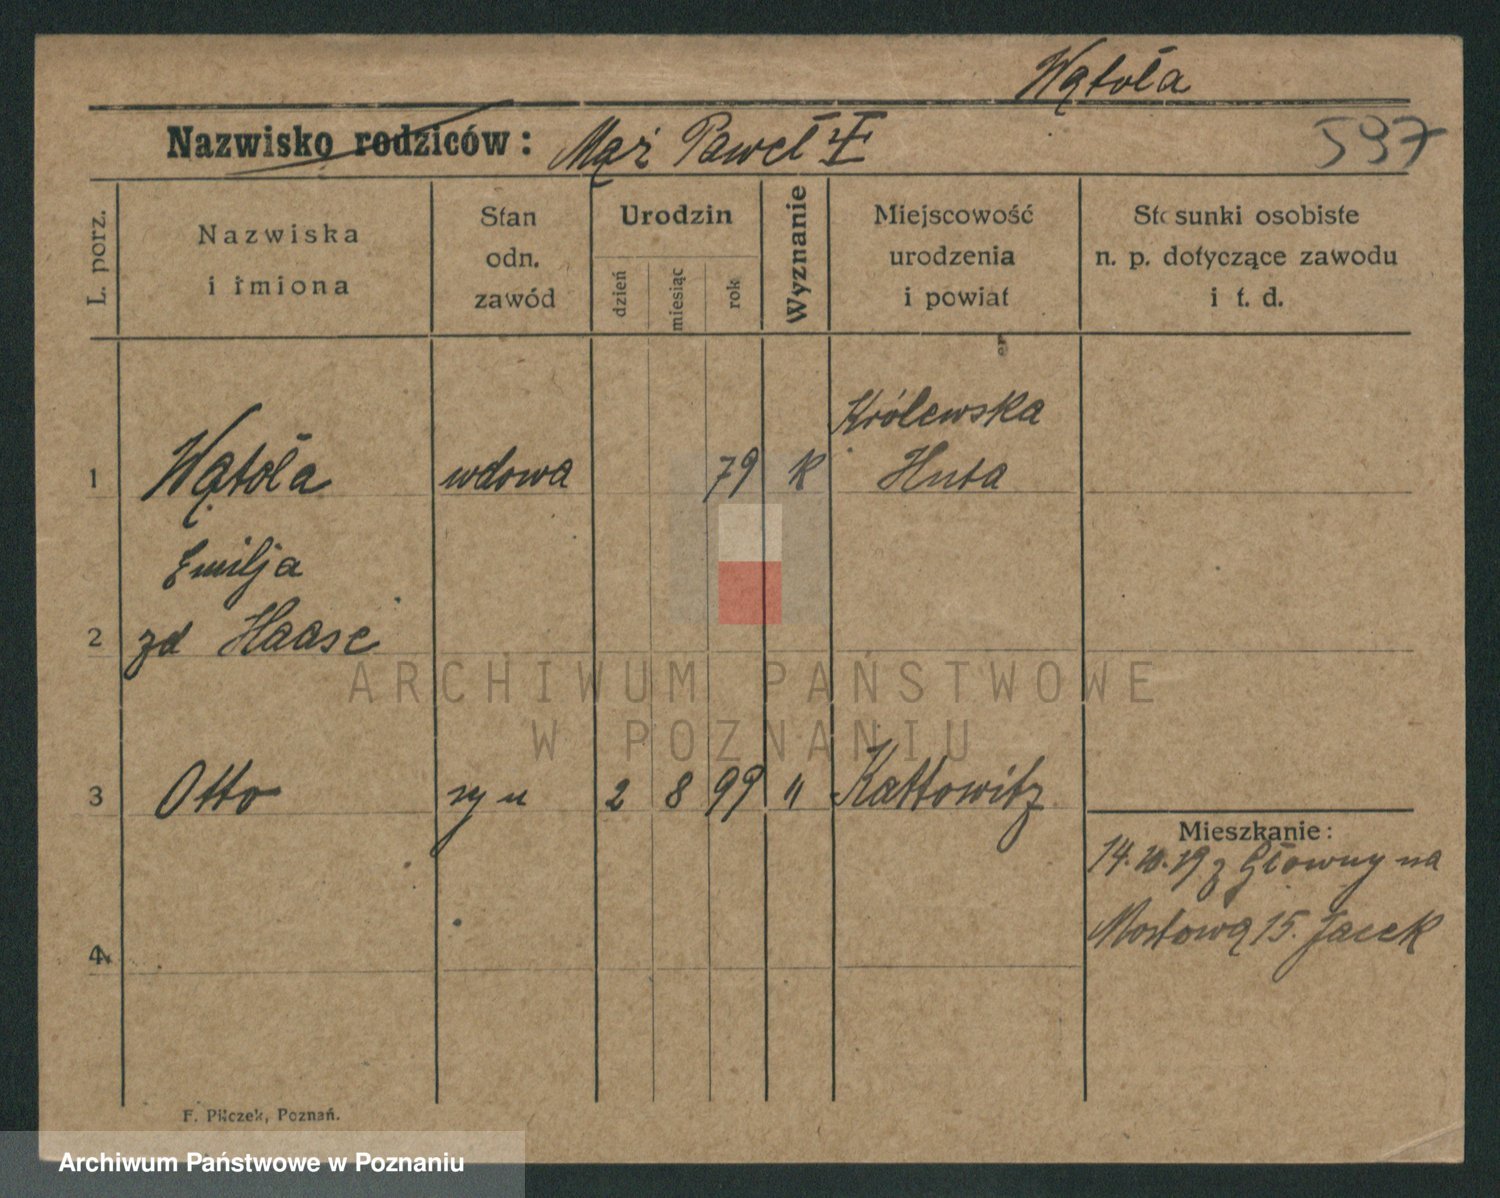 Wątoła
Nazwisko rodziców: Mąż Paweł
597
L. porz.
Nazwiska
i imiona
Stan
odn.
zawód
Urodzin
dzień
miesiąc
rok
Wyznanie
Miejscowość
urodzenia
i powiat
Stosunki osobiste
n. p. dotyczące zawodu
i t. d.
1 Wątoła wdowa 79 k Królewska
Huta
Emilja
2 zd Haase
3 Otto syn 2 8 99 " Kattowitz
Mieszkanie:
14.10.19 z Głowny na
Mostową 15. Jacek
4
F. Pilczek, Poznań.
ARCHIWUM PAŃSTWOWE
W POZNANIU
Archiwum Państwowe w Poznaniu